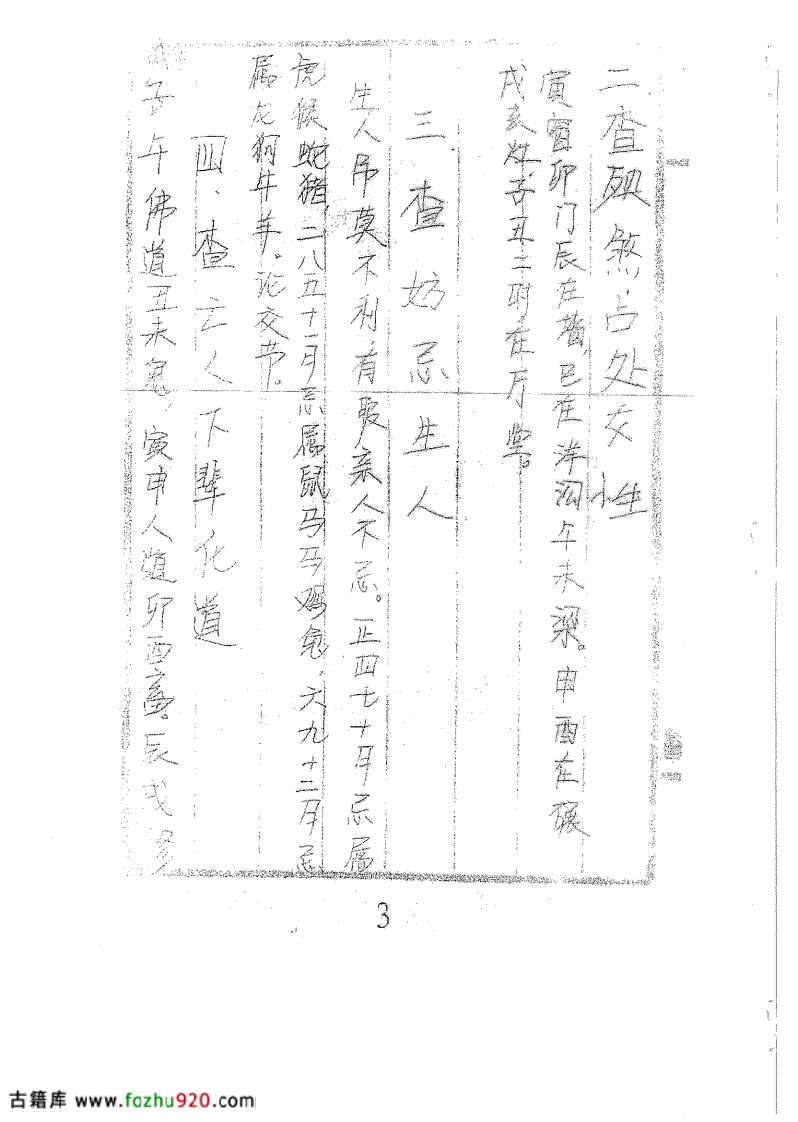 二.查殃煞占处交性
寅窗卯门辰在墙,巳在洋沟午未梁。申酉在碾
戌亥灶,子丑二时在厅堂。
三 查妨忌生人
生人吊莫不利,有服亲人不忌。正四七十月忌属
虎猴蛇猪,二八五十一月忌属鼠马,六九十二月忌
属龙狗牛羊。论交节。
四、查亡人下辈化道
子午佛道丑未鬼,寅申人道卯酉畜。辰戌
3
古籍库 www.fozhu920.com